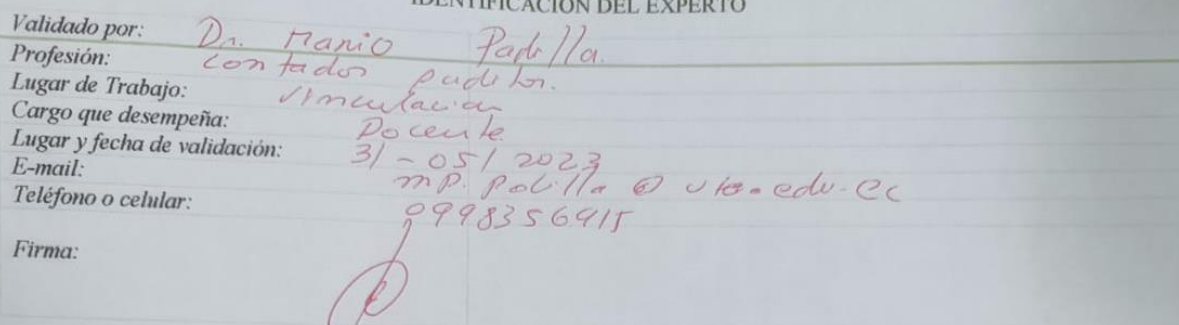 IDENTIFICACIÓN DEL EXPERTO
Validado por: Dr. Mario Padilla.
Profesión: Contador auditor.
Lugar de Trabajo: Vinculación
Cargo que desempeña: Docente
Lugar y fecha de validación: 31-05/2023
E-mail: mp.padilla@uta.edu.ec
Teléfono o celular: 0998356415
Firma: